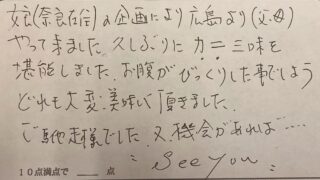 娘(奈良在住)の企画により広島より(父、母)
やって来ました。久しぶりにカニ三味を
堪能しました。お腹がびっくりした事でしょう
どれも大変美味しく頂きました。
ご馳走様でした。又機会があれば……
〃See You〃
10点満点で ＿＿ 点